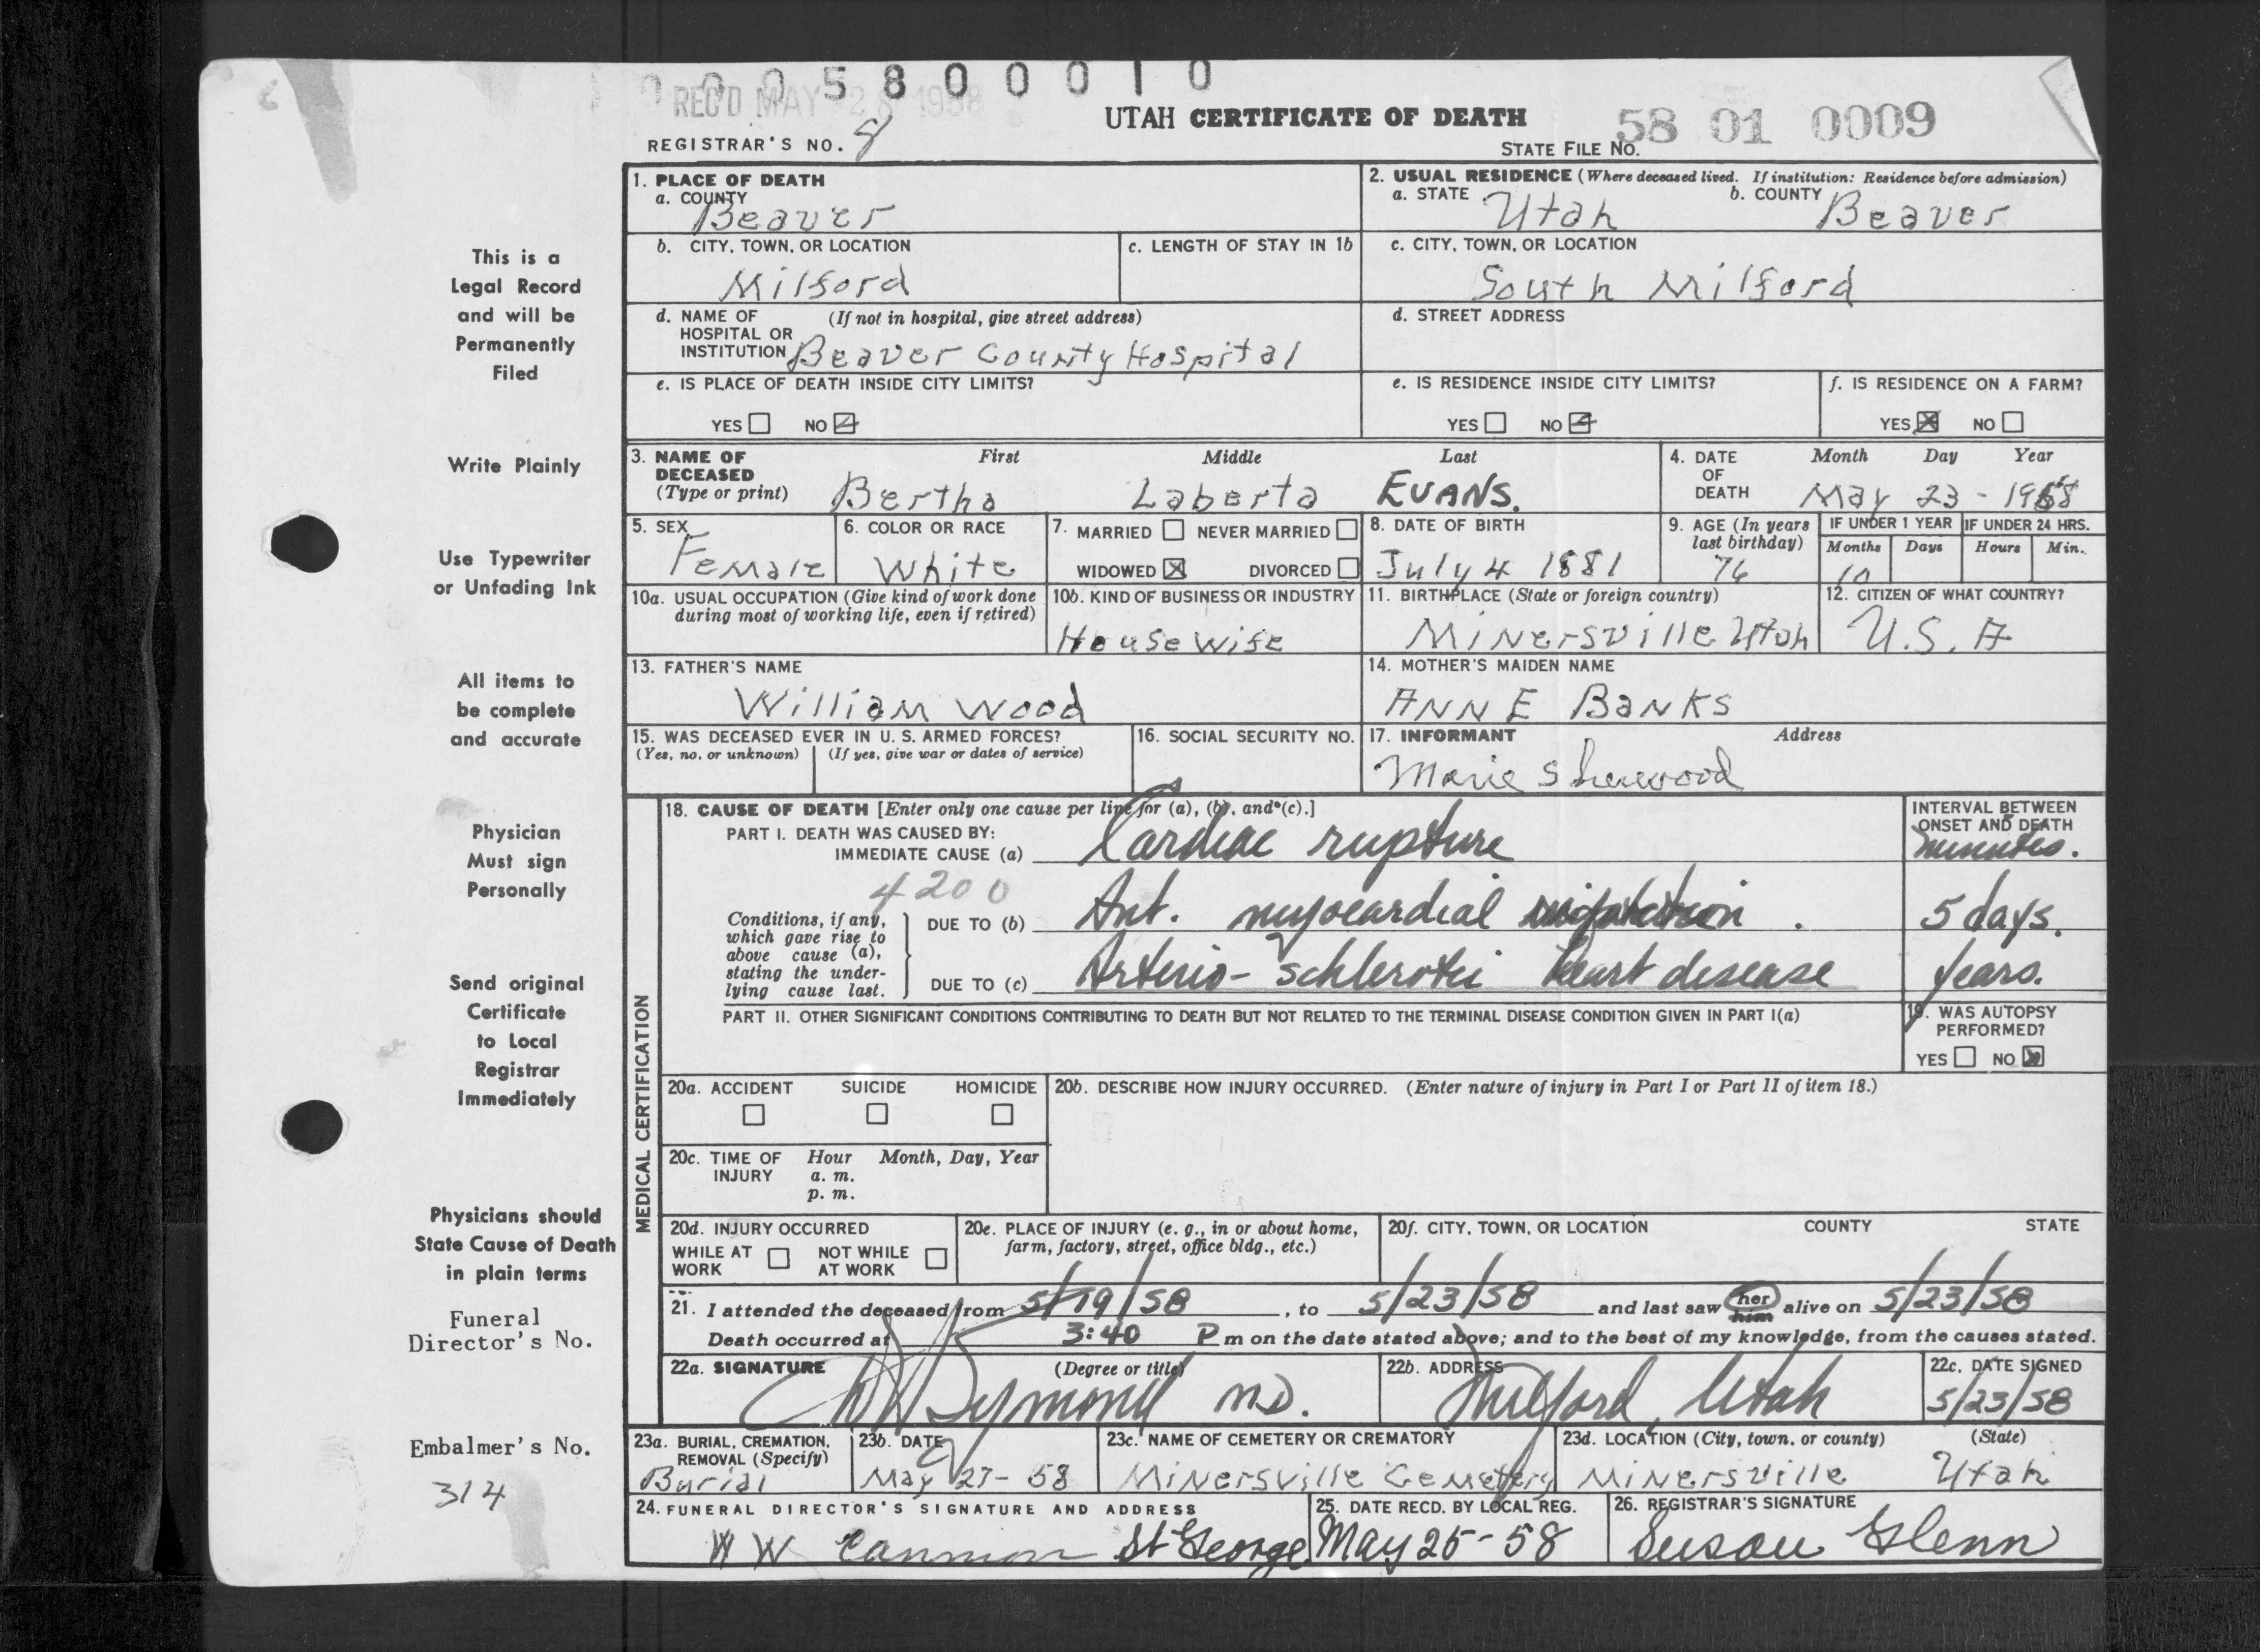 0 0 0 5 8 0 0 0 1 0
REC'D MAY 28 1958
UTAH CERTIFICATE OF DEATH
58 01 0009
REGISTRAR'S NO. 8
STATE FILE NO.
1. PLACE OF DEATH
a. COUNTY
Beaver
2. USUAL RESIDENCE (Where deceased lived. If institution: Residence before admission)
a. STATE Utah b. COUNTY Beaver
This is a
Legal Record
and will be
Permanently
Filed
b. CITY, TOWN, OR LOCATION
Milford
c. LENGTH OF STAY IN 1b
c. CITY, TOWN, OR LOCATION
South Milford
d. NAME OF (If not in hospital, give street address)
HOSPITAL OR
INSTITUTION Beaver County Hospital
d. STREET ADDRESS
e. IS PLACE OF DEATH INSIDE CITY LIMITS?
YES NO
e. IS RESIDENCE INSIDE CITY LIMITS?
YES NO
f. IS RESIDENCE ON A FARM?
YES NO
Write Plainly
3. NAME OF First Middle Last
DECEASED
(Type or print) Bertha Laberta EVANS.
4. DATE Month Day Year
OF
DEATH May 23 - 1958
Use Typewriter
or Unfading Ink
5. SEX
Female
6. COLOR OR RACE
White
7. MARRIED NEVER MARRIED
WIDOWED DIVORCED
8. DATE OF BIRTH
July 4 1881
9. AGE (In years
last birthday)
76
IF UNDER 1 YEAR IF UNDER 24 HRS.
Months Days Hours Min.
10
10a. USUAL OCCUPATION (Give kind of work done
during most of working life, even if retired)
10b. KIND OF BUSINESS OR INDUSTRY
House Wife
11. BIRTHPLACE (State or foreign country)
Minersville Utah
12. CITIZEN OF WHAT COUNTRY?
U.S.A
All items to
be complete
and accurate
13. FATHER'S NAME
William Wood
14. MOTHER'S MAIDEN NAME
ANN E BANKS
15. WAS DECEASED EVER IN U. S. ARMED FORCES?
(Yes, no, or unknown) (If yes, give war or dates of service)
16. SOCIAL SECURITY NO.
17. INFORMANT Address
Marie Sherwood
Physician
Must sign
Personally
MEDICAL CERTIFICATION
18. CAUSE OF DEATH [Enter only one cause per line for (a), (b), and (c).]
PART I. DEATH WAS CAUSED BY:
IMMEDIATE CAUSE (a) Cardiac rupture
INTERVAL BETWEEN
ONSET AND DEATH
minutes.
4200
Conditions, if any,
which gave rise to
above cause (a),
stating the under-
lying cause last.
DUE TO (b) Ant. myocardial
5 days.
DUE TO (c) Arterio-schlerotic heart disease
years.
Send original
Certificate
to Local
Registrar
Immediately
PART II. OTHER SIGNIFICANT CONDITIONS CONTRIBUTING TO DEATH BUT NOT RELATED TO THE TERMINAL DISEASE CONDITION GIVEN IN PART I(a)
19. WAS AUTOPSY
PERFORMED?
YES NO
20a. ACCIDENT SUICIDE HOMICIDE
20b. DESCRIBE HOW INJURY OCCURRED. (Enter nature of injury in Part I or Part II of item 18.)
20c. TIME OF Hour Month, Day, Year
INJURY a. m.
p. m.
Physicians should
State Cause of Death
in plain terms
20d. INJURY OCCURRED
WHILE AT NOT WHILE
WORK AT WORK
20e. PLACE OF INJURY (e. g., in or about home,
farm, factory, street, office bldg., etc.)
20f. CITY, TOWN, OR LOCATION COUNTY STATE
Funeral
Director's No.
21. I attended the deceased from 5/19/58, to 5/23/58 and last saw her him alive on 5/23/58
Death occurred at 3:40 P m on the date stated above; and to the best of my knowledge, from the causes stated.
22a. SIGNATURE (Degree or title)
Symond M.D.
22b. ADDRESS
Milford, Utah
22c. DATE SIGNED
5/23/58
Embalmer's No.
314
23a. BURIAL, CREMATION,
REMOVAL (Specify)
Burial
23b. DATE
May 27-58
23c. NAME OF CEMETERY OR CREMATORY
Minersville Cemetery
23d. LOCATION (City, town, or county) (State)
Minersville Utah
24. FUNERAL DIRECTOR'S SIGNATURE AND ADDRESS
W W Cannon St George
25. DATE RECD. BY LOCAL REG.
May 25-58
26. REGISTRAR'S SIGNATURE
Susan Glenn